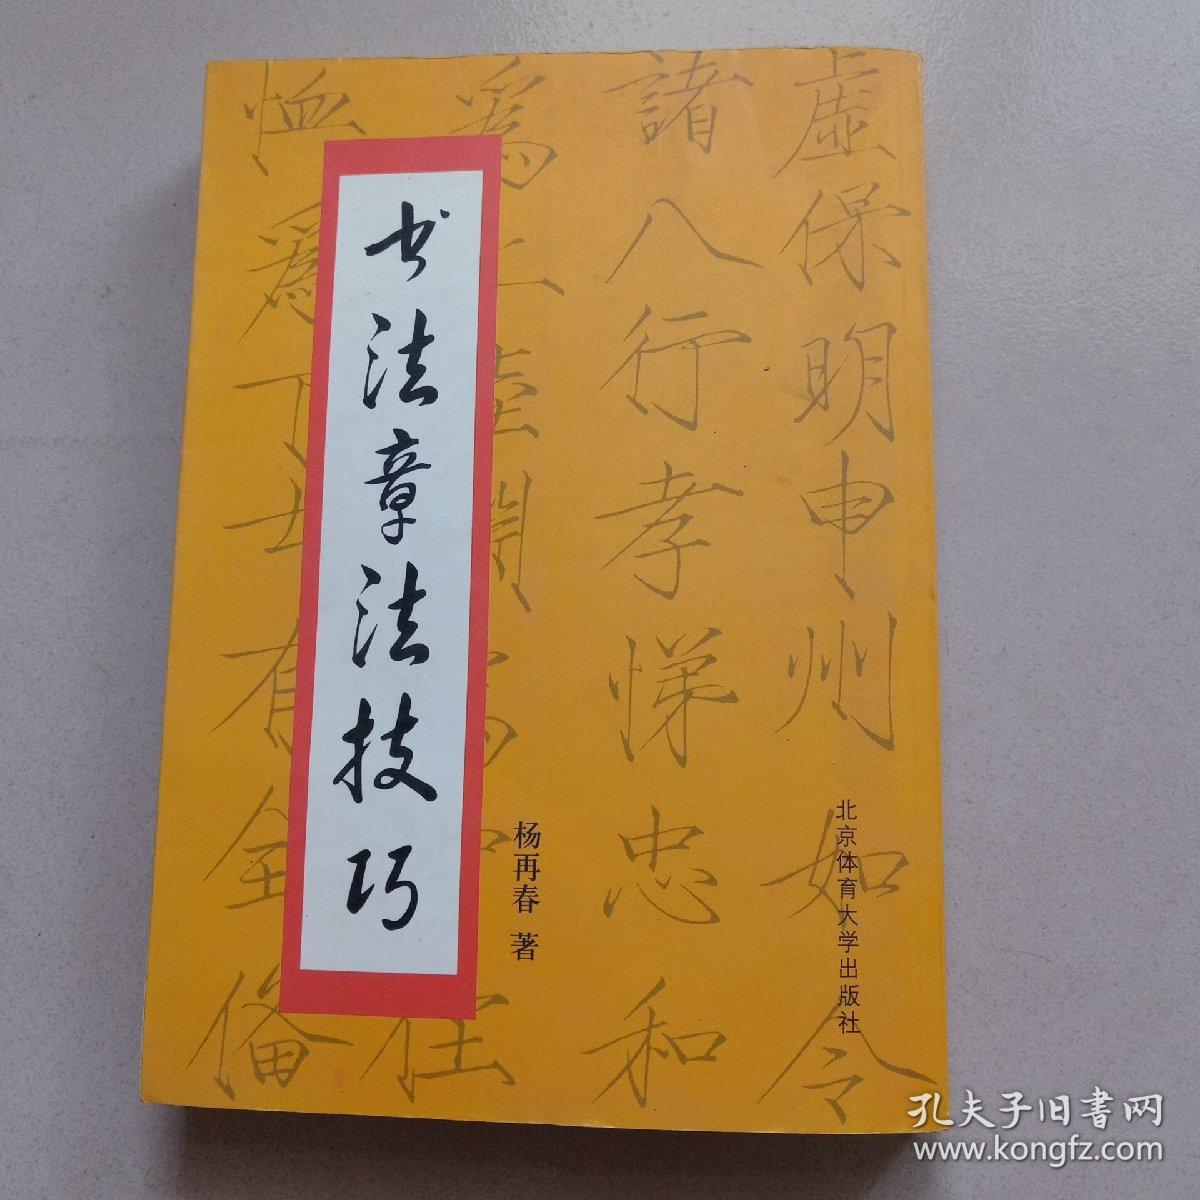 书法章法技巧
杨再春 著
北京体育大学出版社
虚保明申州如令
諸八行孝悌忠和
孔夫子旧書网
www.kongfz.com